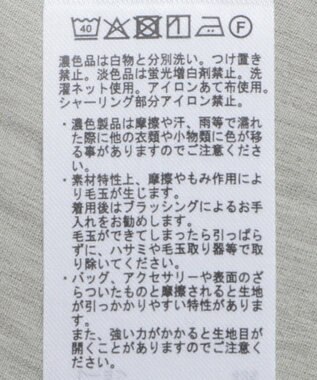 40 F
濃色品は白物と分別洗い。つけ置き
禁止。淡色品は蛍光増白剤禁止。洗
濯ネット使用。アイロンあて布使用。
シャーリング部分アイロン禁止。
・濃色製品は摩擦や汗、雨等で濡れ
た際に他の衣類や小物類に色が移
る事がありますのでご注意くださ
い。
・素材特性上、摩擦やもみ作用によ
り毛玉が生じます。
着用後はブラッシングによるお手
入れをお勧めします。
毛玉ができてしまったら引っぱら
ずに、ハサミや毛玉取り器等で取
り除いてください。
・バッグ、アクセサリーや表面のざ
らついたものと摩擦されると生地
が引っかかりやすい特性がありま
す。
また、強い力がかかると生地目が
開くことがありますのでご注意く
ださい。